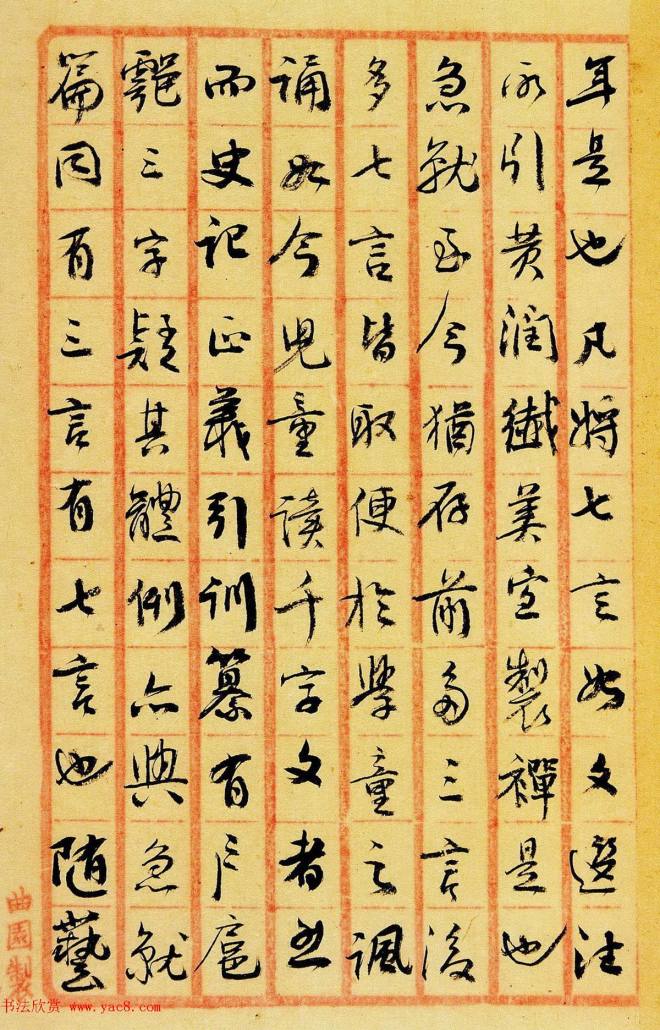 年是也凡將七言如文選注
所引黃潤纖美宜製襌是也
急就至今猶存前多三言後
多七言皆取便於學童之諷
誦如今兒童讀千字文者然
而史記正義引訓纂有戶扈
鄠三字疑其體例亦與急就
篇同有三言有七言也隨藝
曲園製
书法欣赏 www.yac8.com